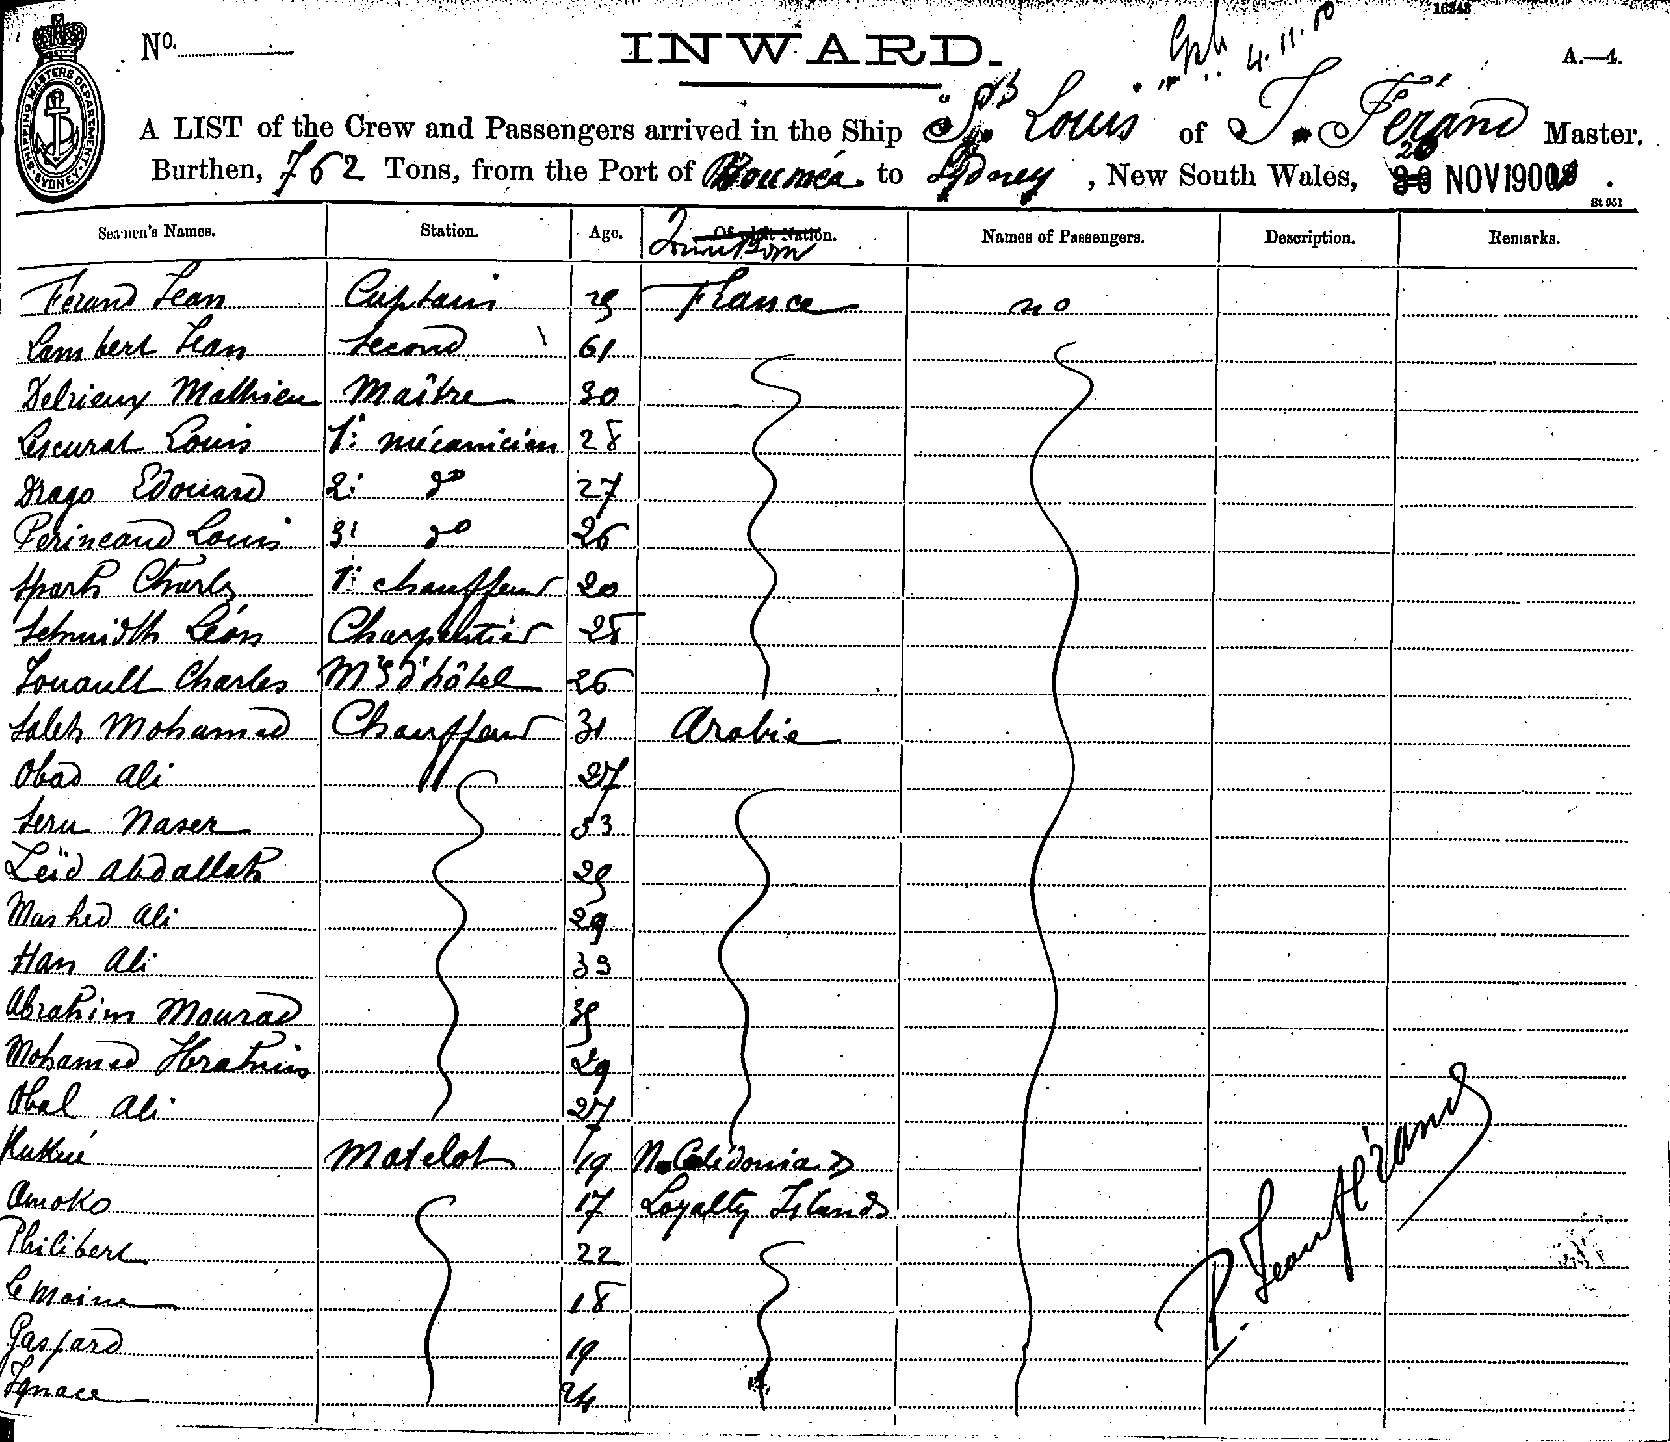 No.
INWARD.
4.11.00
A.—4.
A LIST of the Crew and Passengers arrived in the Ship St. Louis of J. Férand Master.
Burthen, 762 Tons, from the Port of Nouméa to Sydney, New South Wales, 26 NOV 1900.
St 951
Seamen's Names. Station. Age. Of what Nation. Names of Passengers. Description. Remarks.
Ferand Jean Captain France no
Lambert Jean Second 61
Delrieux Mathieu Maître 30
Lescurat Louis 1: mécanicien 28
Drago Edouard 2: do 27
Perineaud Louis 3: do 26
Charles 1: chauffeur 20
Schmidth Léon Charpentier 28
Louault Charles Mre d'hôtel 26
Saleh Mohamed Chauffeur 31 Arabie
Obad Ali 27
Naser 33
Zeïd Abdallah 29
Mashed Ali 29
Han Ali 33
Abrahim Mourad 35
Mohamed Ibrahim 29
Obal Ali 27
Matelot 19 N. Calédonia
Amoko 17 Loyalty Islands
Philibert 22
Lemoine 18
Gaspard 19
Ignace 24
Jean Férand